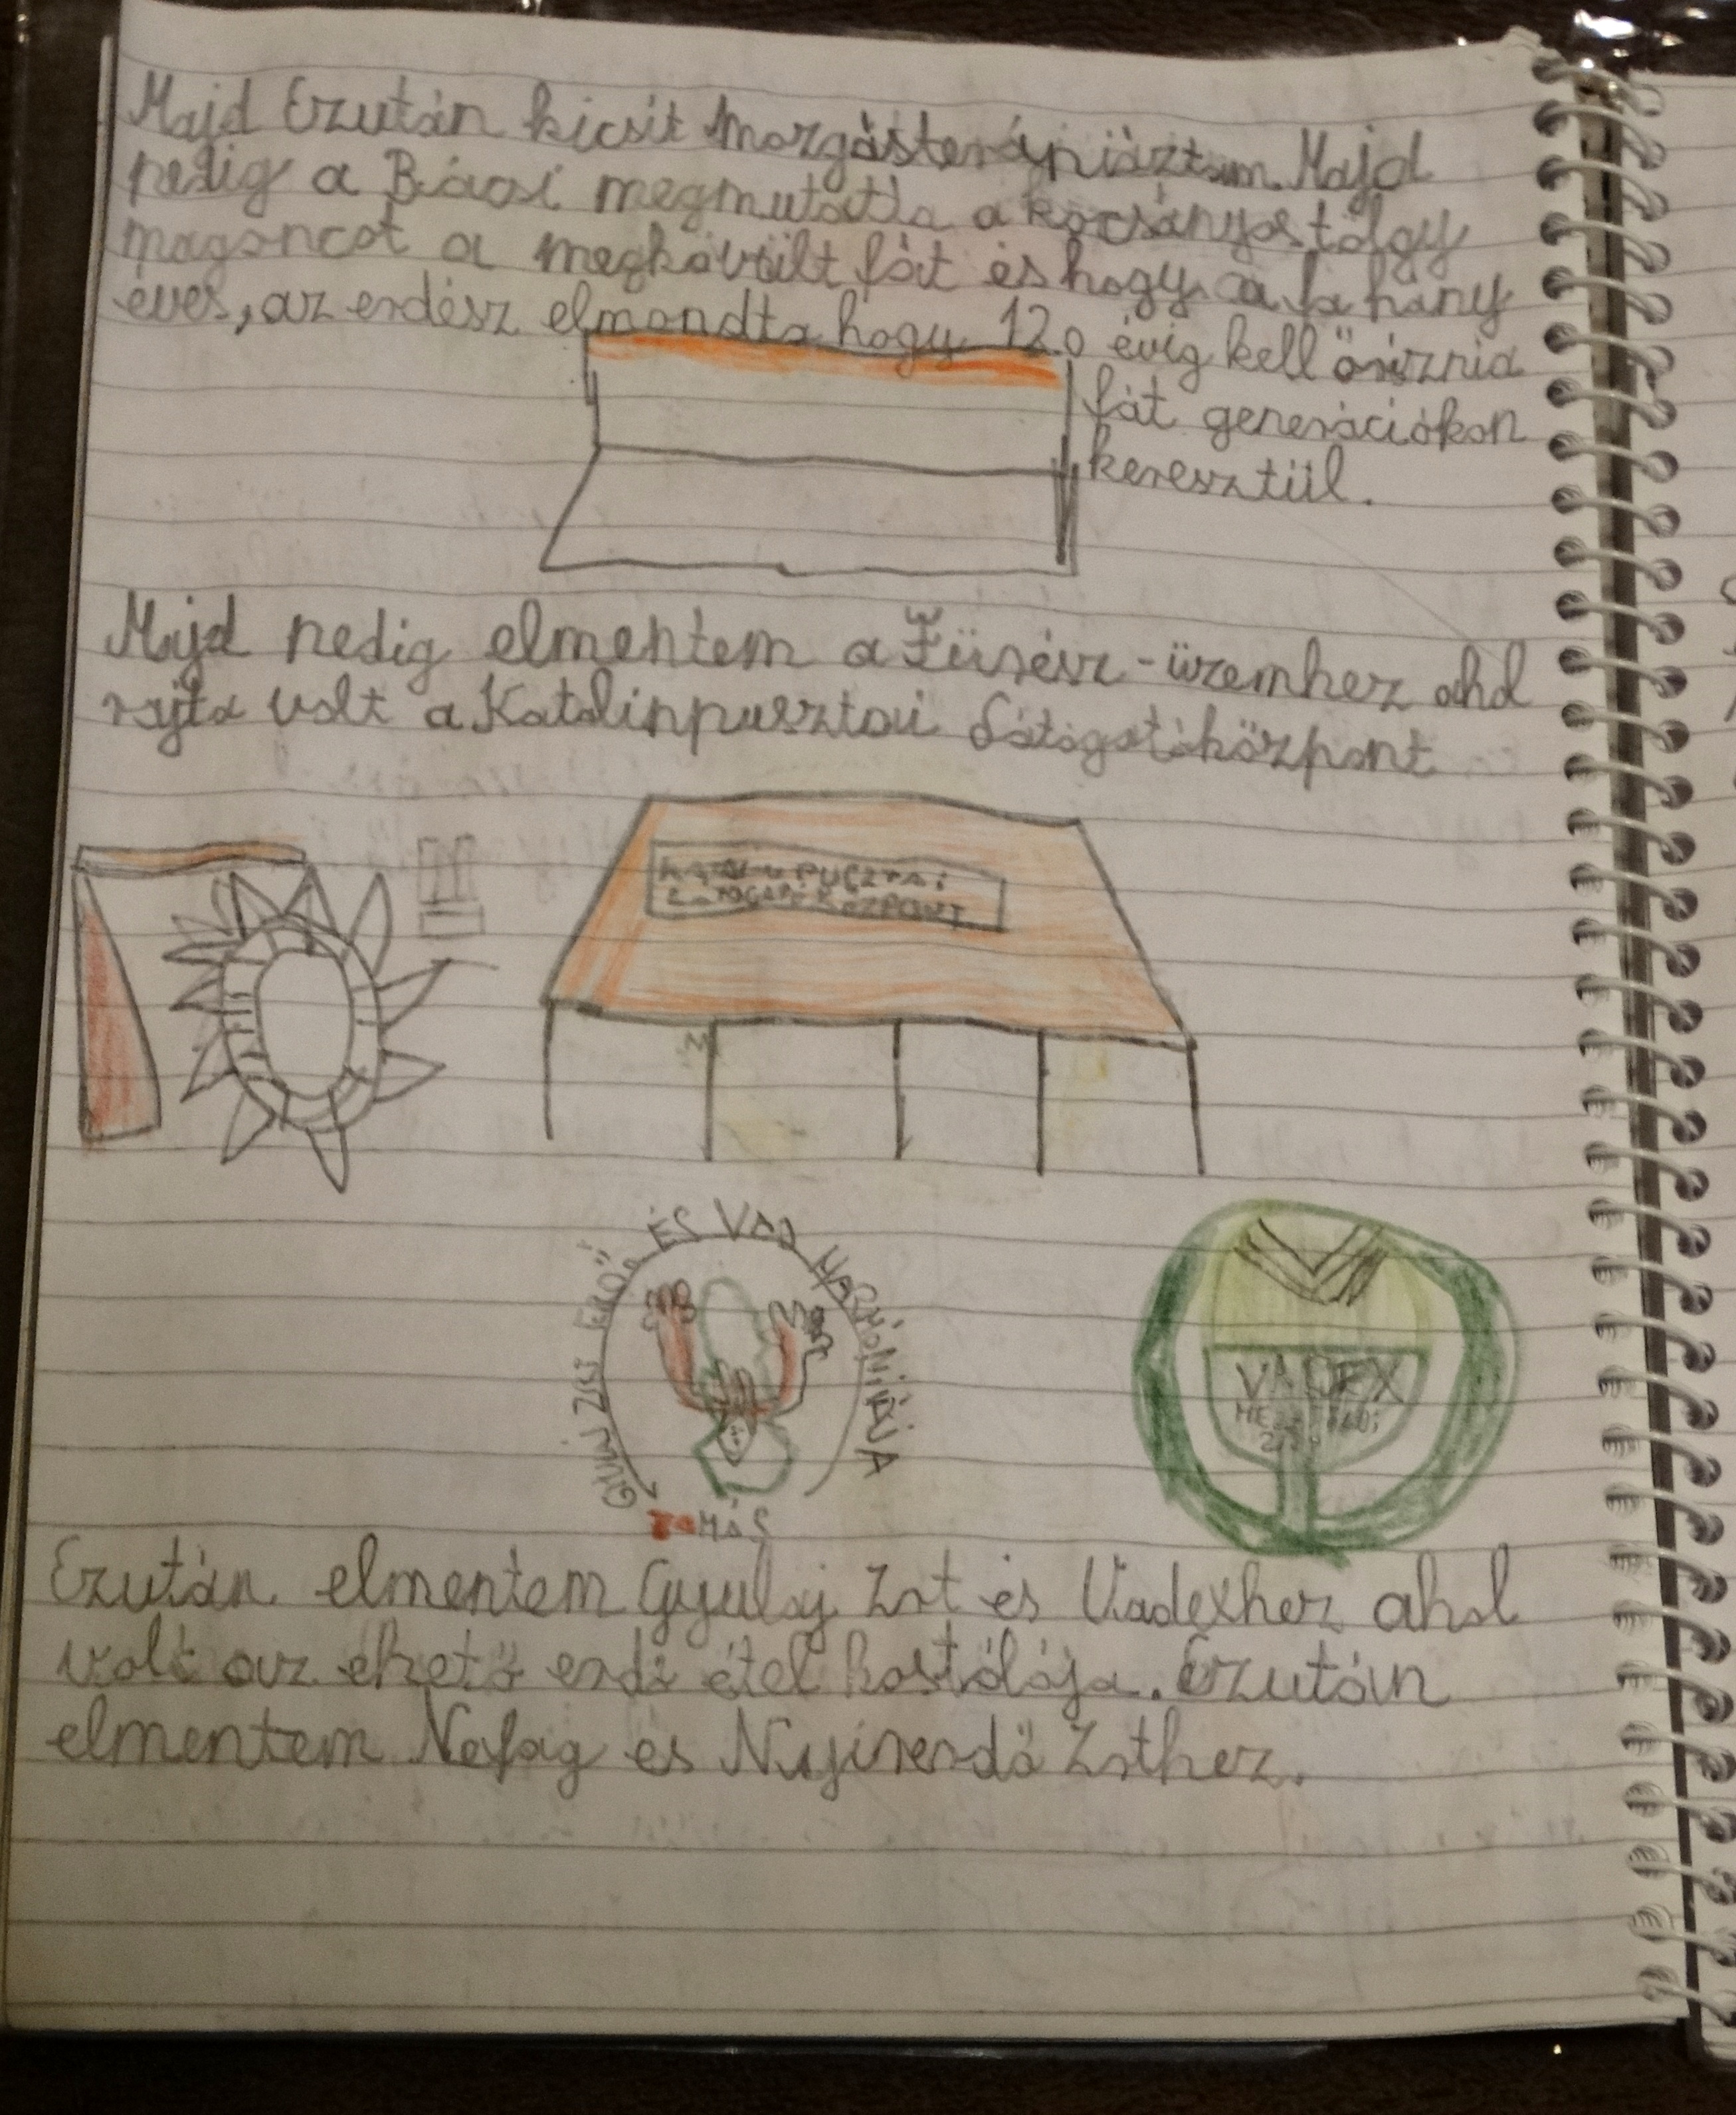 Majd Ezután kicsit mozgásterápiáztam. Majd
pedig a Bácsi megmutatta a kocsányostölgy
magoncot a megkövült fát és hogy a fa hány
éves, az erdész elmondta hogy 120 évig kell őriznia
fát generációkon
keresztül.
Majd pedig elmentem a Fűrész-üzemhez ahol
rajta volt a Katalinpusztai Látogatóközpont
PUSZTAi
LáTOGATÓKÖZPONT
GYULAJ ZRT ERDŐ ÉS VAD HARMÓNIÁJA
TAMÁSI
VADEX
MEZŐFÖLDi
ZRT
Ezután elmentem Gyulaj Zrt és Vadexhez ahol
volt az ehető erdő étel kostólója. Ezután
elmentem Nefag és Nyírerdő Zrthez.